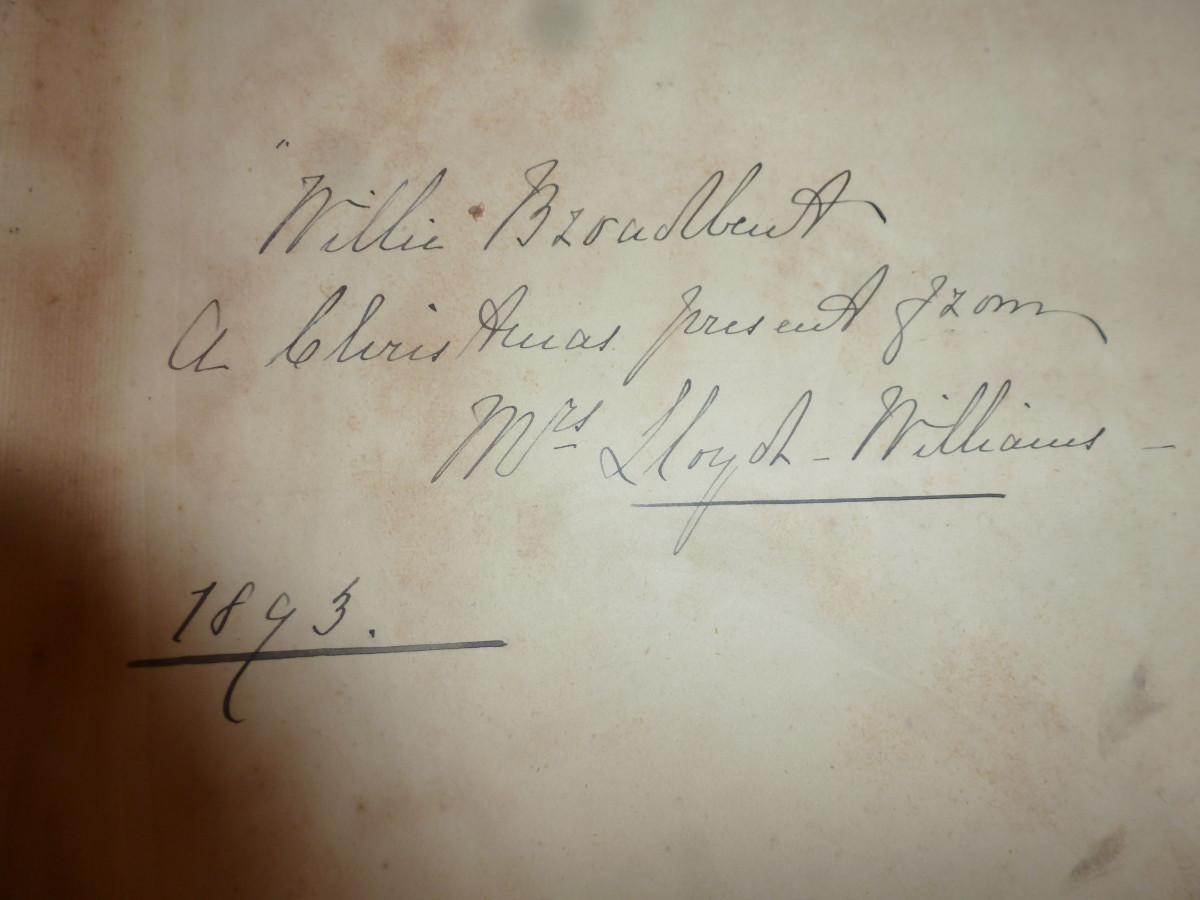 "Willie Broadbent
A Christmas present from
Mrs Lloyd-Williams -
1893.